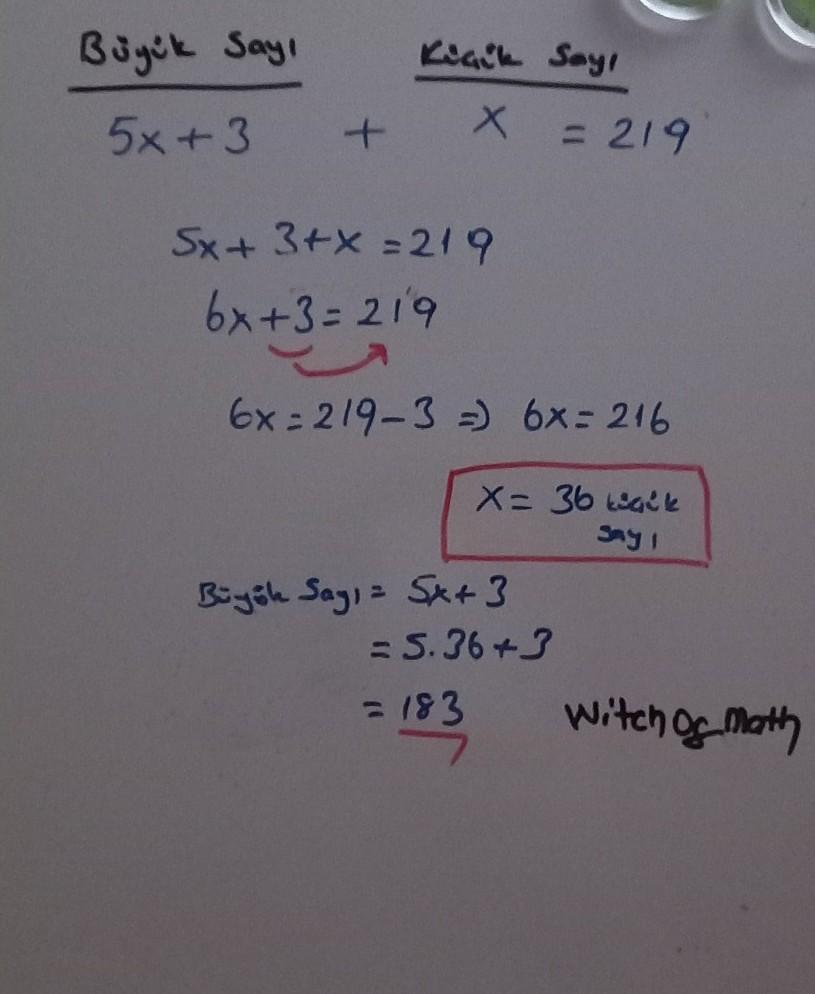 Büyük Sayı Küçük Sayı
5x+3 + x = 219
5x+3+x=219
6x+3=219
6x=219-3 => 6x=216
x= 36 küçük
sayı
Büyük Sayı = 5x+3
= 5.36+3
= 183 WitchOf_Math